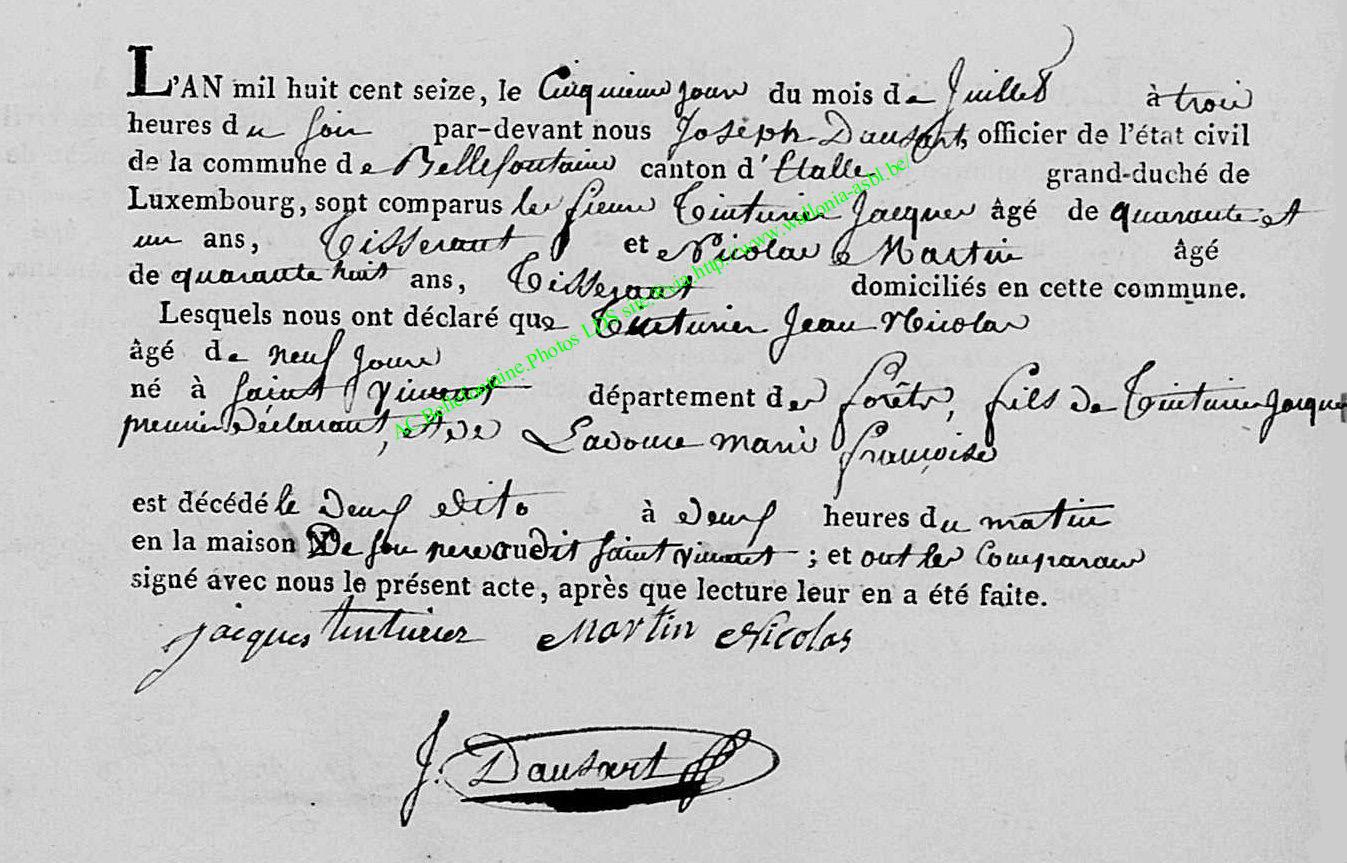 L'AN mil huit cent seize, le Cinquieme jour du mois de Juillet à trois
heures du soir par-devant nous Joseph Dausart, officier de l'état civil
de la commune de Bellefontaine canton d'Etalle grand-duché de
Luxembourg, sont comparus les sieurs Tinturier Jacques âgé de quarante et
un ans, Tisserant et Nicolas Martin âgé
de quarante huit ans, Tisserant domiciliés en cette commune.
Lesquels nous ont déclaré que Tinturier Jean Nicolas
âgé de neuf jours
né à saint Vincent département des forêts, fils de Tinturier Jacques
premier Déclarant, et de Ladouce marie françoise
est décédé le deux dito à deux heures du matin
en la maison De son pere audit saint vincent ; et ont les Comparans
signé avec nous le présent acte, après que lecture leur en a été faite.
jacques tinturier Martin Nicolas
J. Dausart
AC Bellefontaine.Photos LDS site.revia.http://www.wallonia-asbl.be/